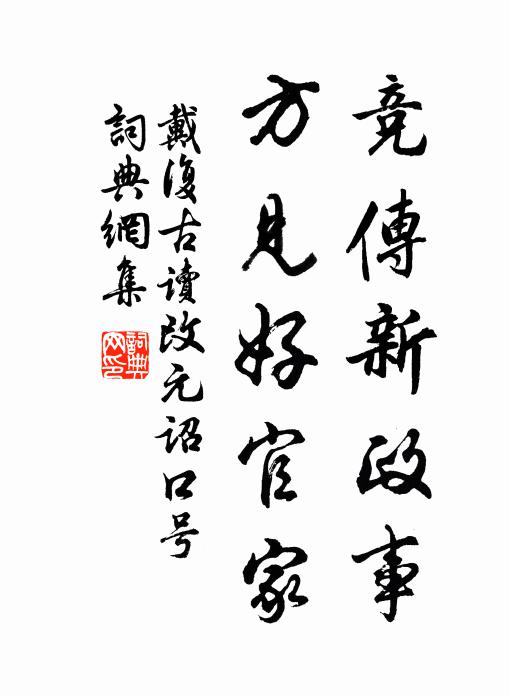 竞傳新政事
方見好官家
戴復古讀改元詔口号
詞典網集
詞典網印